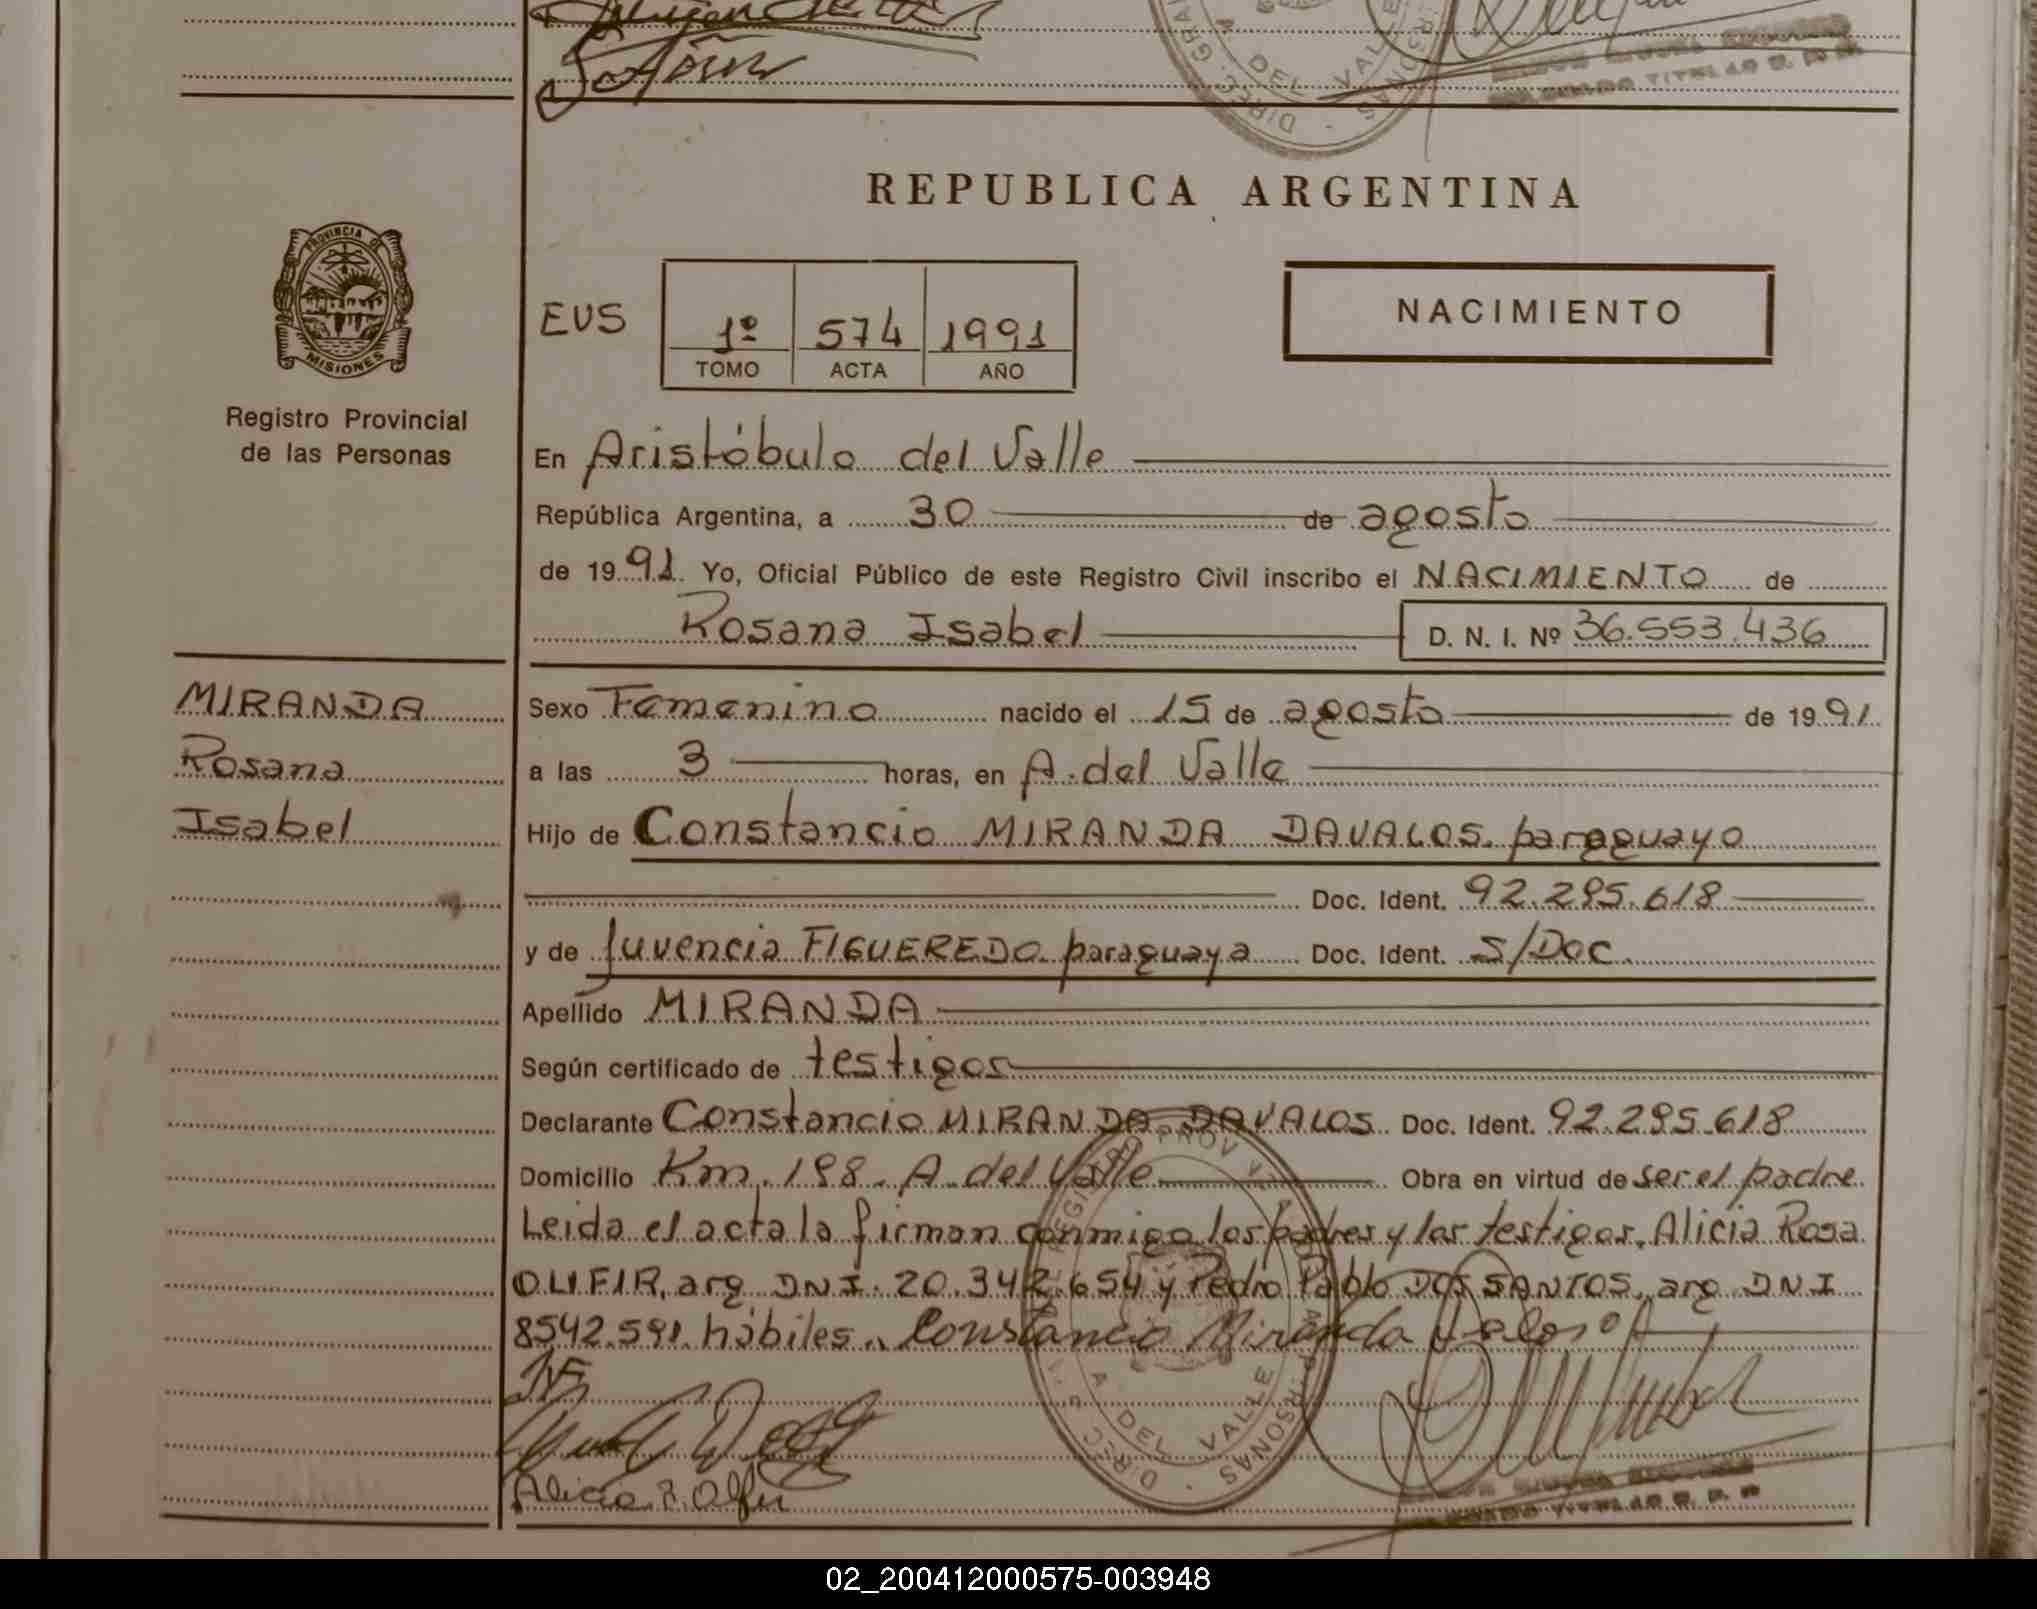 REPUBLICA ARGENTINA
PROVINCIA DE
MISIONES
Registro Provincial
de las Personas
EVS
1º 574 1991
TOMO ACTA AÑO
NACIMIENTO
En Aristóbulo del Valle
República Argentina, a 30 de agosto
de 1991 Yo, Oficial Público de este Registro Civil inscribo el NACIMIENTO de
Rosana Isabel D. N. I. Nº 36.553.436
MIRANDA
Rosana
Isabel
Sexo Femenino nacido el 15 de agosto de 1991
a las 3 horas, en A. del Valle
Hijo de Constancio MIRANDA DAVALOS. paraguayo
Doc. Ident. 92.295.618
y de Juvencia FIGUEREDO paraguaya Doc. Ident. S/Doc.
Apellido MIRANDA
Según certificado de testigos
Declarante Constancio MIRANDA DAVALOS Doc. Ident. 92.295.618
Domicilio Km. 198. A. del Valle Obra en virtud de ser el padre
Leida el acta la firman conmigo los padres y los testigos, Alicia Rosa
OLIFIR, arg. DNI. 20.342.654 y Pedro Pablo DOS SANTOS, arg. DNI
8542.591. hábiles.. Constancio Miranda
A. DEL VALLE
02_200412000575-003948